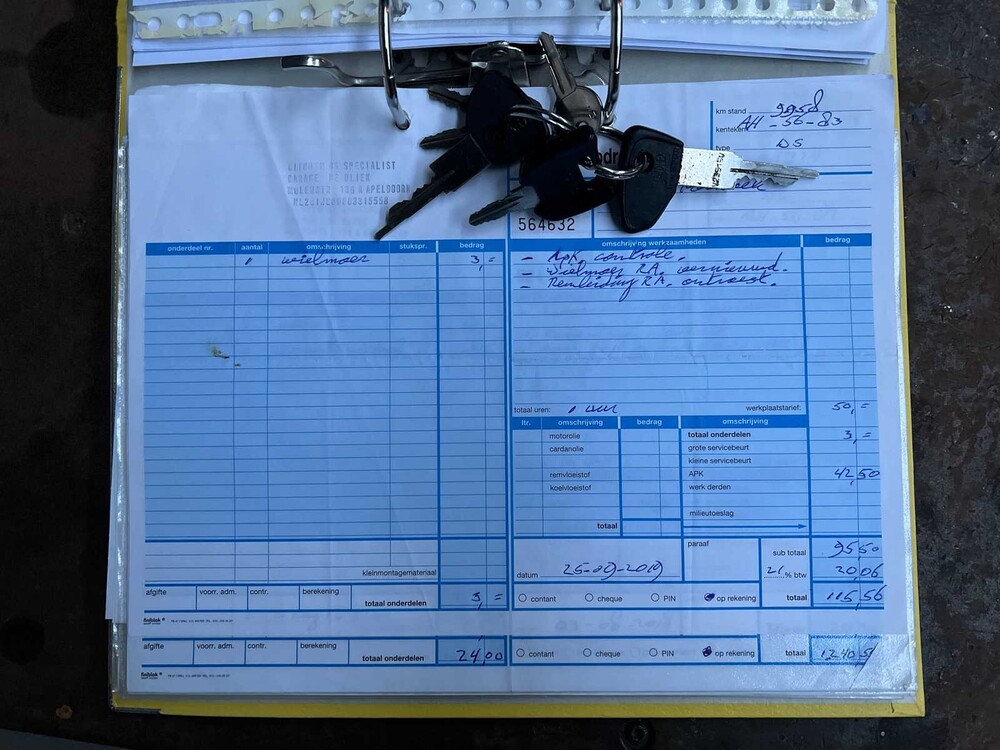 km stand 9958
kenteken AH-56-83
type DS
SPECIALIST
APELDOORN
564632
onderdeel nr. aantal omschrijving stukspr. bedrag
1 wielmoer 3,=
omschrijving werkzaamheden bedrag
- Apk controle.
- Wielmoer RA. vernieuwd.
- Remleiding RA. ontroest.
totaal uren: 1 uur werkplaatstarief: 50,=
ltr. omschrijving bedrag omschrijving
motorolie totaal onderdelen 3,=
cardanolie grote servicebeurt
kleine servicebeurt
remvloeistof APK 42,50
koelvloeistof werk derden
milieutoeslag
totaal
kleinmontagemateriaal
paraaf sub totaal 95,50
datum 25-09-2019 21 % btw 20,06
afgifte voorr. adm. contr. berekening totaal onderdelen 3,=
contant cheque PIN op rekening totaal 115,56
finjblok
afgifte voorr. adm. contr. berekening totaal onderdelen 24,00
contant cheque PIN op rekening totaal
finjblok